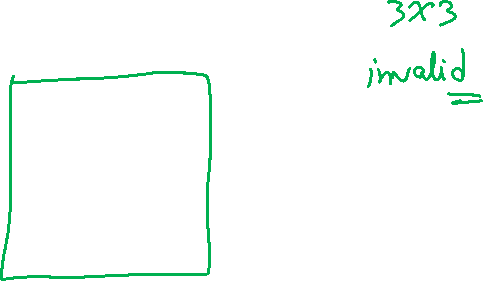 3x3
invalid